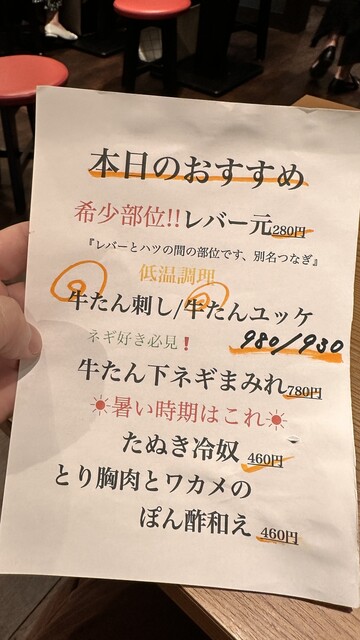 本日のおすすめ
希少部位!!レバー元280円
『レバーとハツの間の部位です、別名つなぎ』
低温調理
牛たん刺し/牛たんユッケ
ネギ好き必見❗ 980/930
牛たん下ネギまみれ780円
☀暑い時期はこれ☀
たぬき冷奴 460円
とり胸肉とワカメの
ぽん酢和え 460円